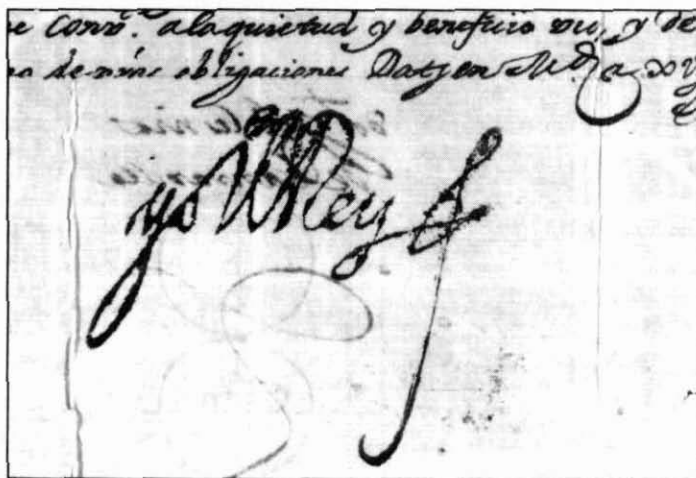 e Conv.ᵗ a la quietud y beneficio vro, y de
no de nr̃as obligaciones Dat; en Mad.ᵈ a xv
yo el Rey